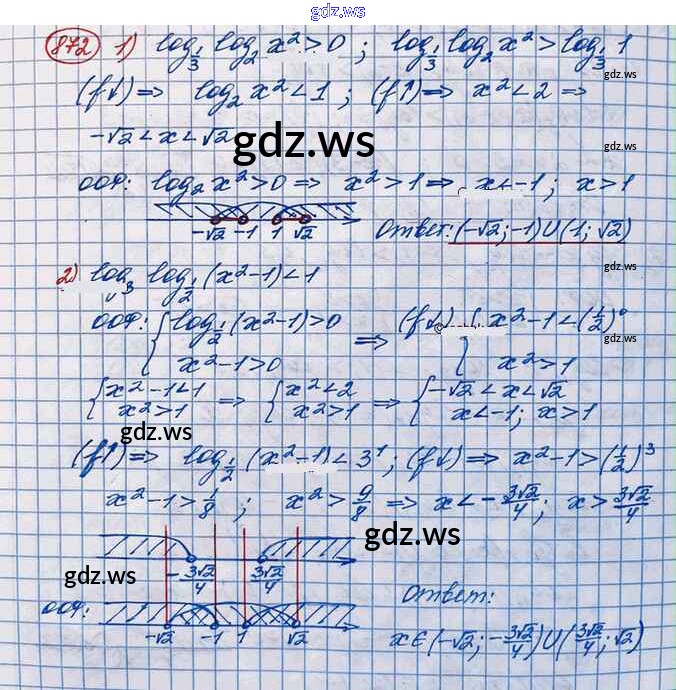 gdz.ws
872 1) log_{1/3} log_2 x² > 0 ; log_{1/3} log_2 x² > log_{1/3} 1
gdz.ws
(f↓) ⇒ log_2 x² < 1 ; (f↑) ⇒ x² < 2 ⇒
-√2 < x < √2
gdz.ws
gdz.ws
ООФ: log_2 x² > 0 ⇒ x² > 1 ⇒ x < -1 ; x > 1
-√2 -1 1 √2
Ответ: (-√2; -1) U (1; √2)
2) log_3 log_{1/2} (x² - 1) < 1
gdz.ws
ООФ: { log_{1/2} (x² - 1) > 0 ⇒ (f↓) { x² - 1 < (1/2)⁰
x² - 1 > 0 x² > 1
gdz.ws
{ x² - 1 < 1 ⇒ { x² < 2 ⇒ { -√2 < x < √2
x² > 1 x² > 1 x < -1; x > 1
gdz.ws
(f↑) ⇒ log_{1/2} (x² - 1) < 3¹ ; (f↓) ⇒ x² - 1 > (1/2)³
x² - 1 > 1/8 ; x² > 9/8 ⇒ x < -3√2/4 ; x > 3√2/4
gdz.ws
gdz.ws
-3√2/4 3√2/4
gdz.ws
Ответ:
ООФ:
-√2 -1 1 √2
x ∈ (-√2; -3√2/4) U (3√2/4; √2)